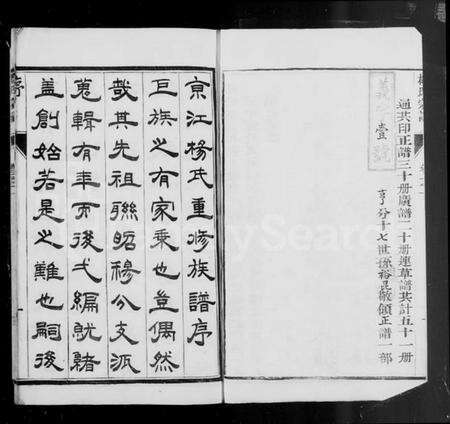 通共印正譜三十册廣譜二十册連草譜共計五十一册
亨分十七世孫裕昆敬領正譜一部
壹號
京江楊氏重修族譜序
巨族之有家乘也豈偶然
哉其先祖聯昭穆公支派
蒐輯有年而後弋編猷緒
蓋創始若是之難也嗣後